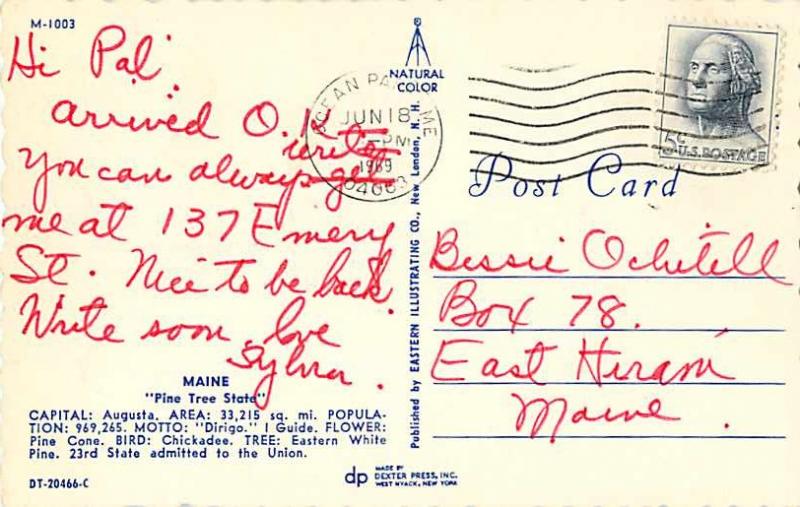 M-1003
Hi Pal.
arrived O.K.
write
You can always get
me at 137 Emery
St. Nice to be back.
Write soon. love
Sylvia.
MAINE
"Pine Tree State"
CAPITAL: Augusta. AREA: 33,215 sq. mi. POPULA-
TION: 969,265. MOTTO: "Dirigo." I Guide. FLOWER:
Pine Cone. BIRD: Chickadee. TREE: Eastern White
Pine. 23rd State admitted to the Union.
DT-20466-C
NATURAL
COLOR
Published by EASTERN ILLUSTRATING CO., New London, N. H.
dp
MADE BY
DEXTER PRESS, INC.
WEST NYACK, NEW YORK
OCEAN PARK, ME
JUN 18
PM
1969
04063
5¢
U.S. POSTAGE
Post Card
Bessie Ochitell
Box 78.
East Hiram
Maine.